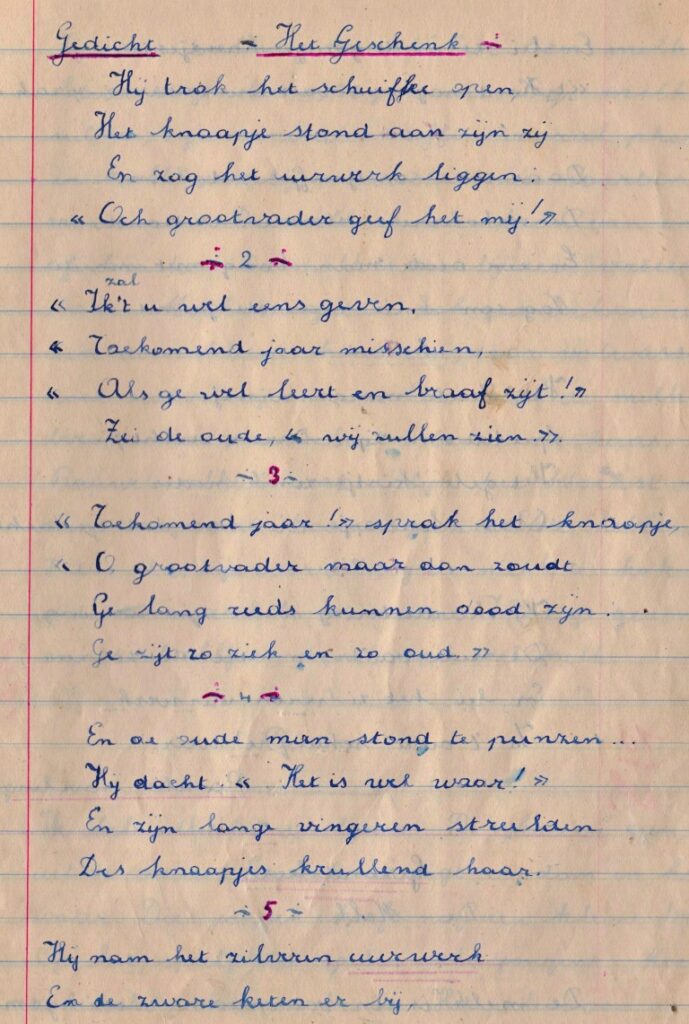 Gedicht ÷ Het Geschenk ÷
Hij trok het schuifke open,
Het knaapje stond aan zijn zij
En zag het uurwerk liggen:
« Och grootvader geef het mij! »
÷ 2 ÷
zal
« Ik't u wel eens geven,
« Toekomend jaar misschien,
« Als ge wel leert en braaf zijt! »
Zei de oude, « wij zullen zien. ».
÷ 3 ÷
« Toekomend jaar! » sprak het knaapje,
« O grootvader maar dan zoudt
Ge lang reeds kunnen dood zijn.
Ge zijt zo ziek en zo oud. »
÷ 4 ÷
En de oude man stond te peinzen...
Hij dacht. « Het is wel waar! »
En zijn lange vingeren streelden
Des knaapjes krullend haar.
÷ 5 ÷
Hij nam het zilveren uurwerk
En de zware keten er bij,